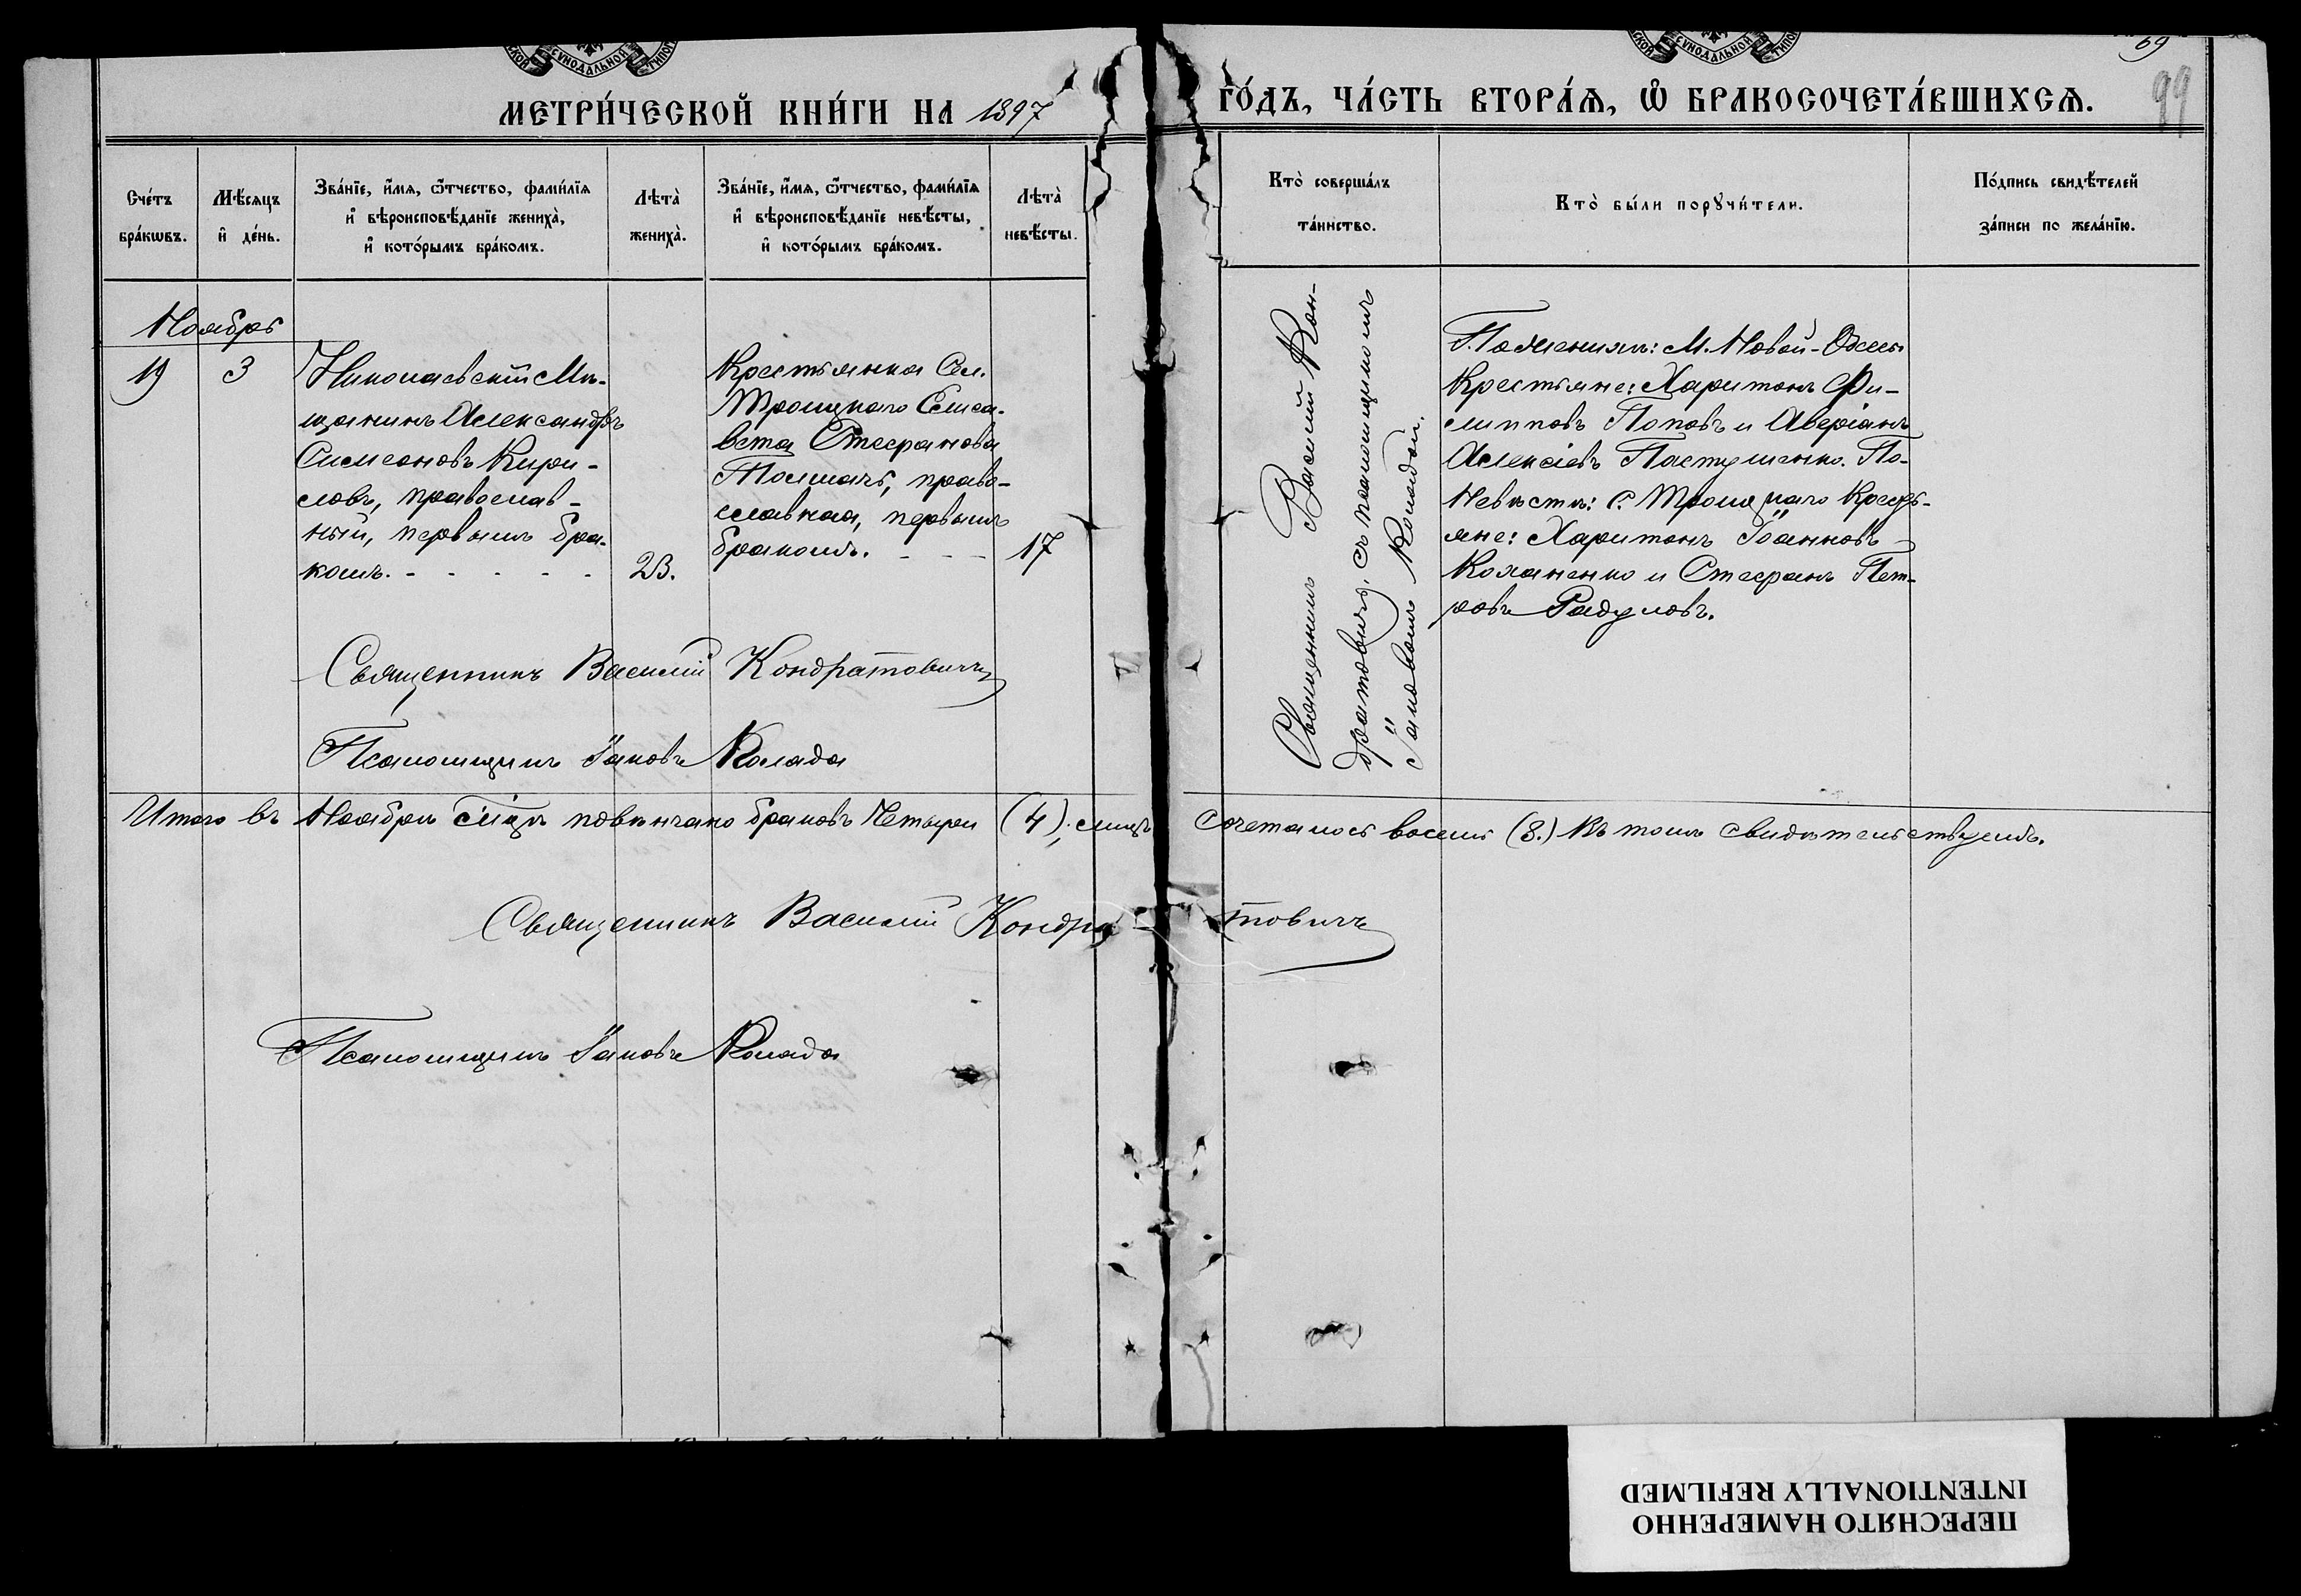 СѴНОДАЛЬНОЙ
СѴНОДАЛЬНОЙ
69
99
МЕТРИ́ЧЕСКОЙ КНИ́ГИ НА 1897
ГО́ДЪ, ЧА́СТЬ ВТОРА́Ѧ, Ѡ҆ БРАКОСОЧЕТА́ВШИХСѦ.
Сче́тъ бра́кѡвъ.
Мѣ́сяцъ и҆ де́нь.
Зва́нїе, и҆́мѧ, ѻ҆́тчество, фами́лїѧ и҆ вѣроисповѣ́данїе жениха̀, и҆ кото́рымъ бра́комъ.
Лѣта̀ жениха̀.
Зва́нїе, и҆́мѧ, ѻ҆́тчество, фами́лїѧ и҆ вѣроисповѣ́данїе невѣ́сты, и҆ кото́рымъ бра́комъ.
Лѣта̀ невѣ́сты.
Кто̀ соверша́лъ та́инство.
Кто̀ бы́ли порꙋчи́тели.
По́дпись свидѣ́телей за́писи по жела́нїю.
Ноябрь
19
3
Николаевскій Мѣ-
щанинъ Александръ
Симеоновъ Кири-
ловъ, православ-
ный, первымъ бра-
комъ. - - - - -
23.
Крестьянка Сел.
Троицкаго Елиса-
вета Стефанова
Толмачъ, право-
славная, первымъ
бракомъ. - - -
17
Священникъ Василій Кон-
дратовичъ, съ псаломщикомъ
Іаковомъ Коладой.
По Женихѣ: М. Новой-Одессы
Крестьяне: Харитонъ Фи-
липповъ Поповъ и Аверіанъ
Алексіевъ Пастушенко. По
Невѣстѣ: С. Троицкаго Кресть-
яне: Харитонъ Іоанновъ
Коханенко и Стефанъ Пет-
ровъ Радуловъ.
Священникъ Василій Кондратовичъ
Псаломщикъ Іаковъ Колада
Итого въ Ноябрѣ м͠цѣ повѣнчано браковъ Четыре (4), лицъ сочеталось восемь (8.) Въ томъ свидѣтельствуемъ.
Священникъ Василій Кондратовичъ
Псаломщикъ Іаковъ Колада
ПЕРЕСНЯТО НАМЕРЕННО
INTENTIONALLY REFILMED